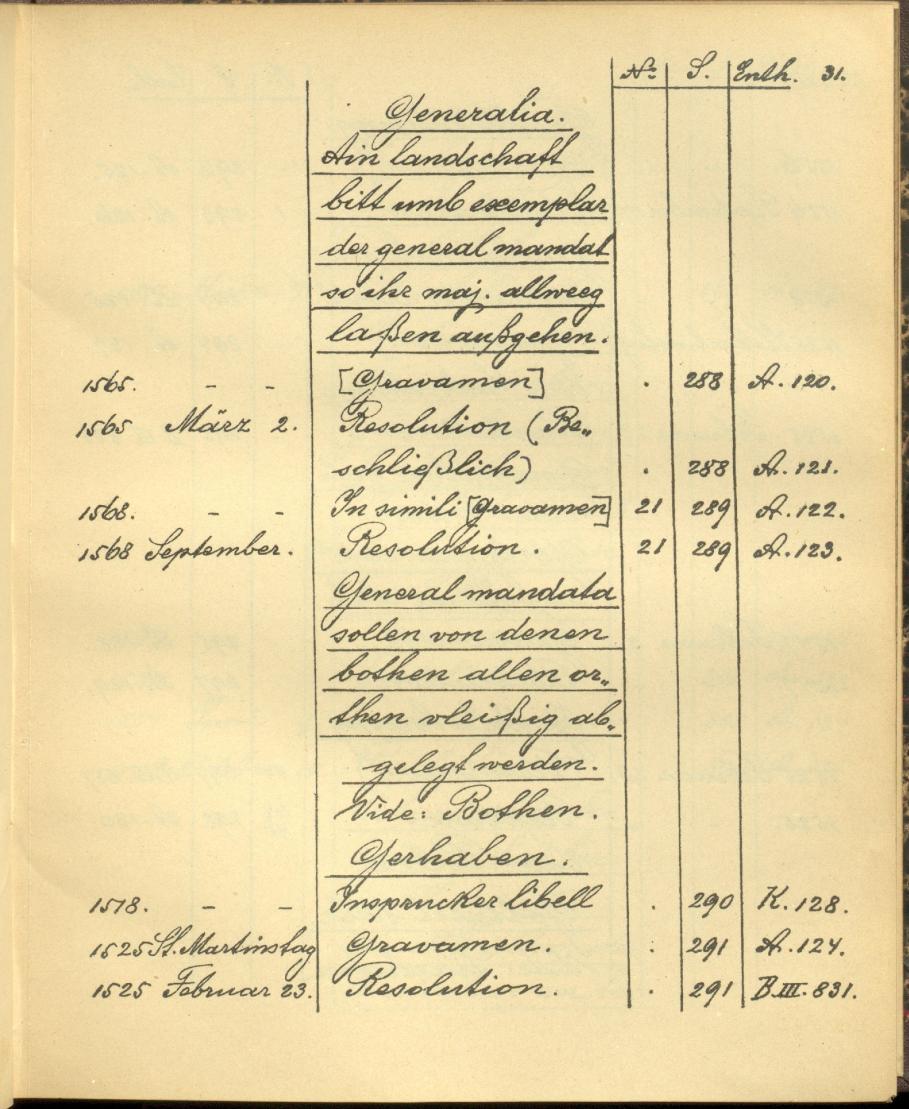 No. S. Enth. 31.
Generalia.
Ain landschaft
bitt umb exemplar
der general mandat
so ihr maj. allweeg
laßen außgehen.
1565. – – [Gravamen] . 288 A. 120.
1565 März 2. Resolution (Be„
schließlich) . 288 A. 121.
1568. – – In simili [Gravamen] 21 289 A. 122.
1568 September. Resolution. 21 289 A. 123.
General mandata
sollen von denen
bothen allen or„
then vleißig ab„
gelegt werden.
Vide: Bothen.
Gerhaben.
1518. – – Insprucker libell . 290 K. 128.
1525 St. Martinstag Gravamen. . 291 A. 124.
1525 Februar 23. Resolution. . 291 B. III. 831.